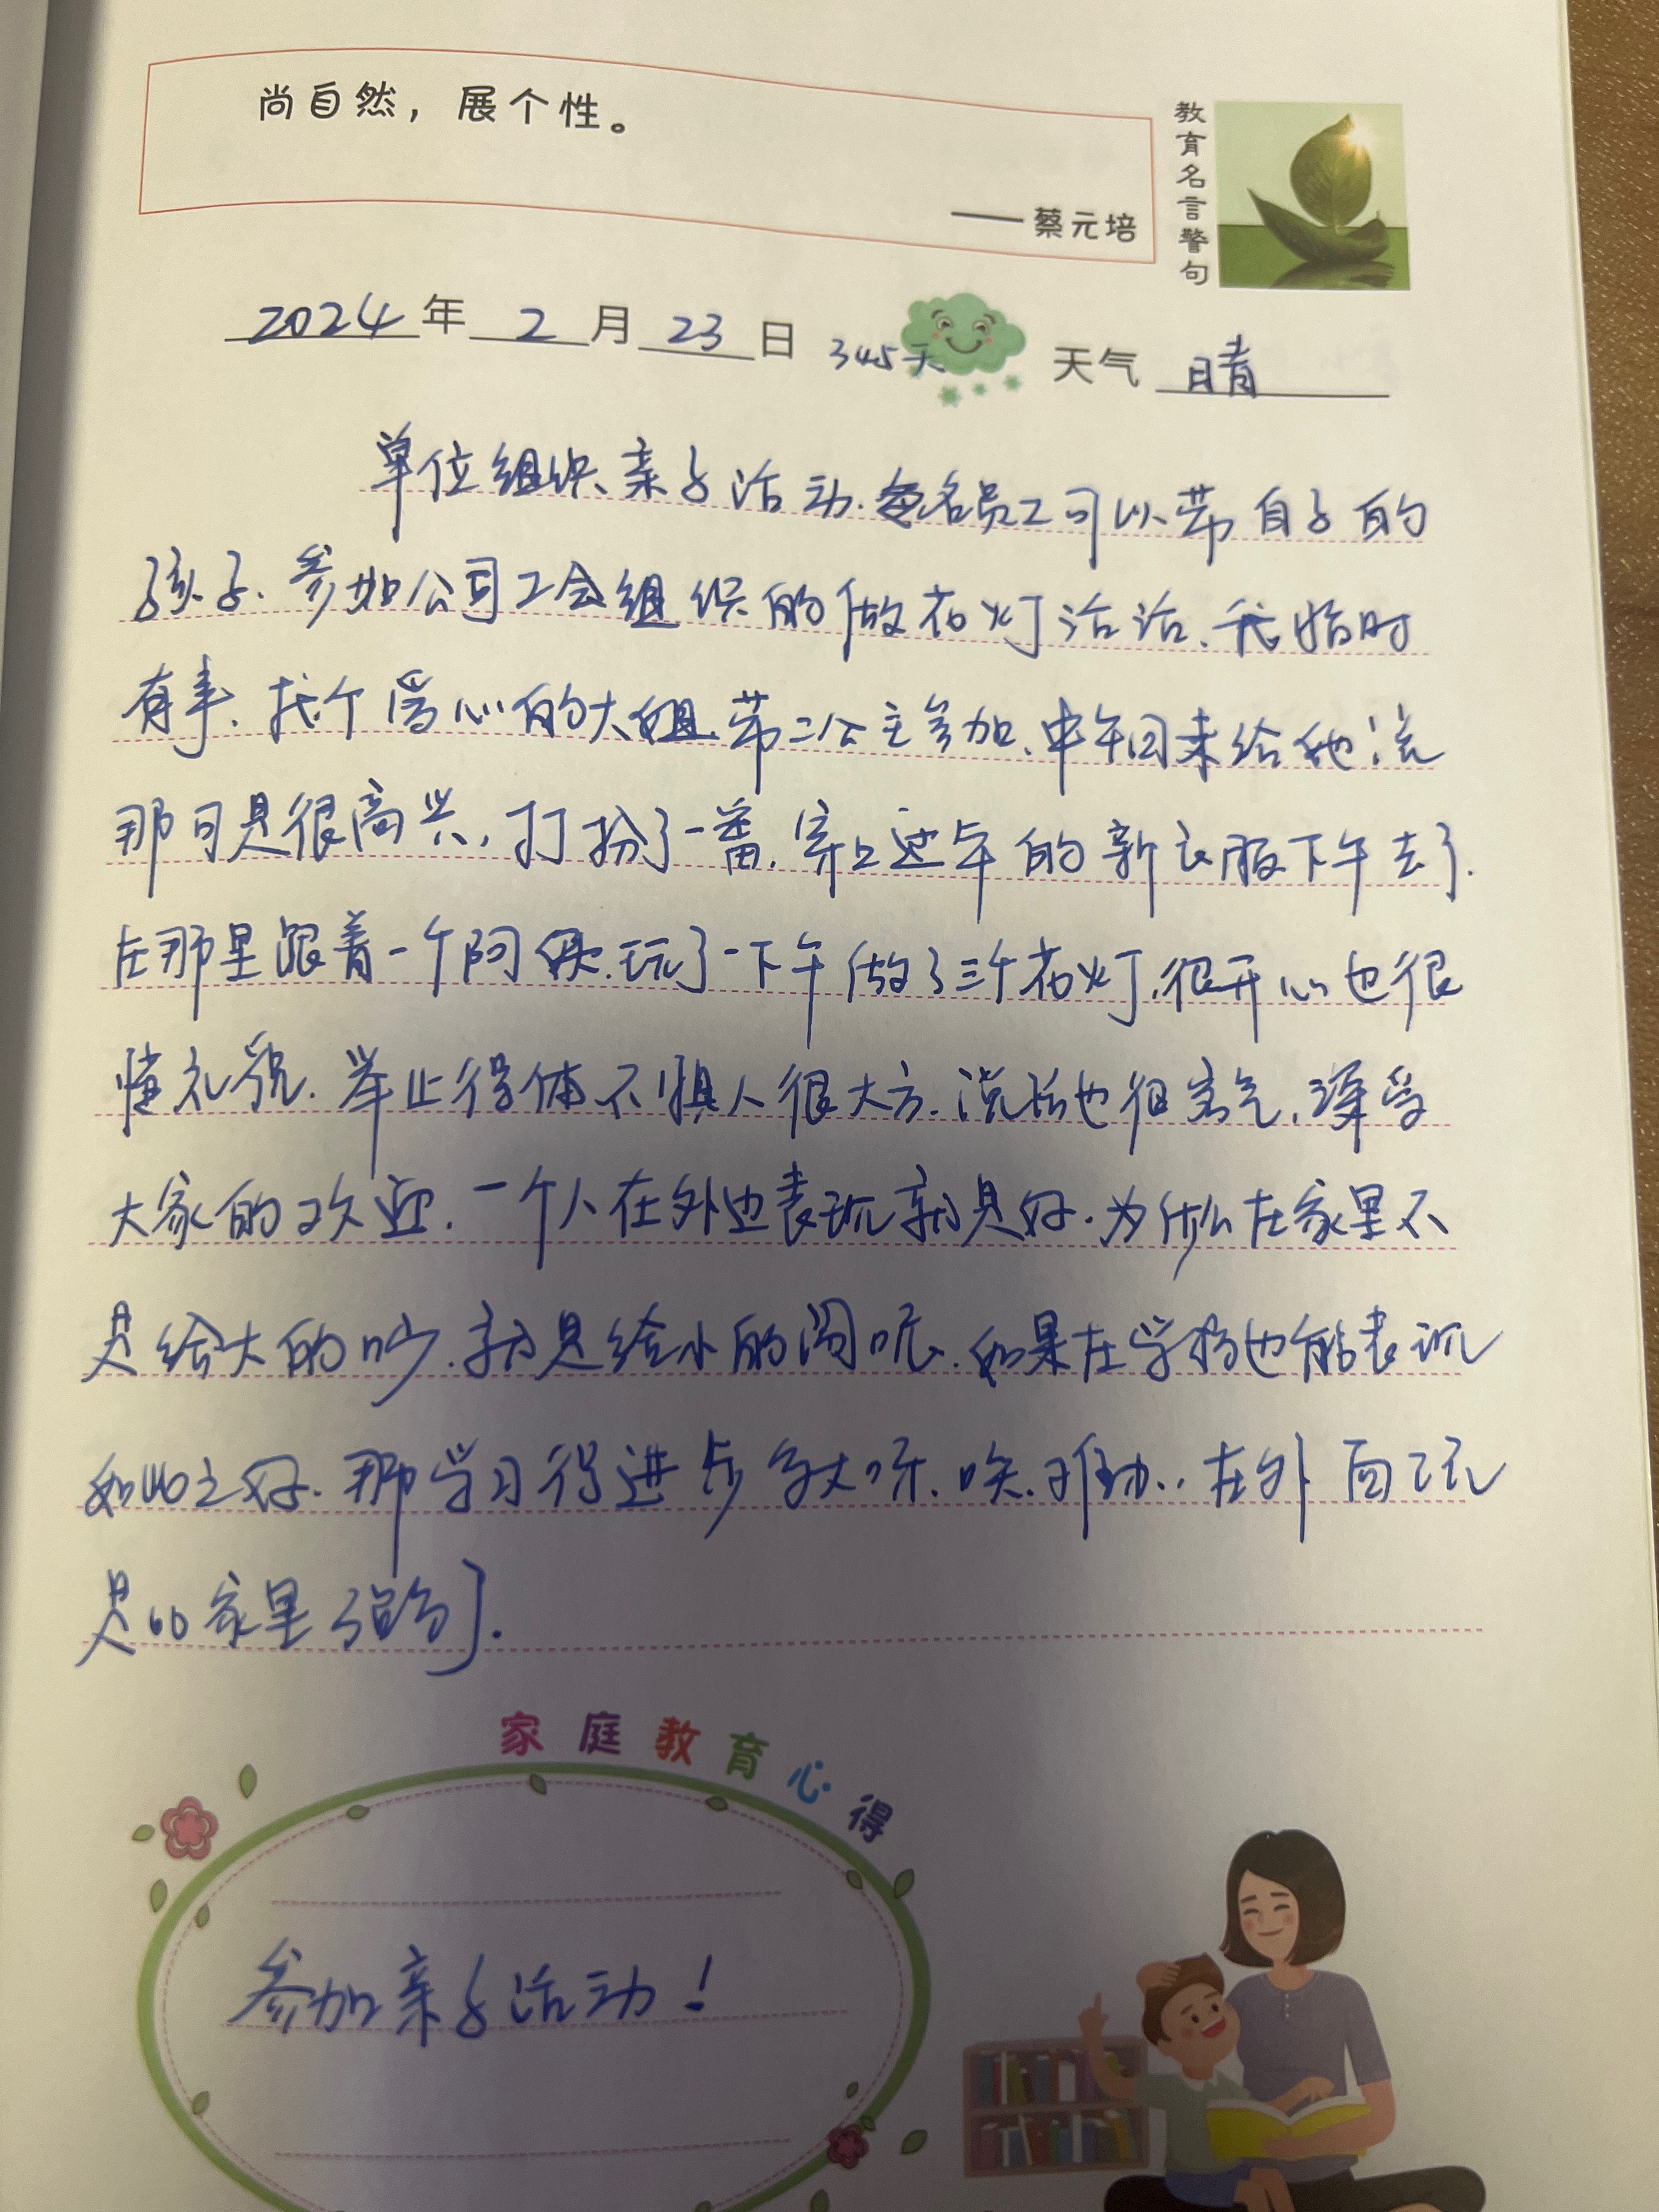 尚自然，展个性。
——蔡元培
教育名言警句
2024年2月23日 345天 天气 晴
单位组织亲子活动.各员工可以带自己的
孩子.参加公司工会组织的做花灯活活、我临时
有事、找个爱心的大姐.带二公主参加、中午回来给她说
那可是很高兴,打扮了一番.穿上过年的新衣服下午去了.
在那里跟着一个阿姨.玩了一下午做了三个花灯,很开心也很
懂礼貌.举止得体不惧人很大方.说话也很客气,深受
大家的欢迎.一个人在外边表现就是好.为什么在家里不
是给大的吵.就是给小的闹呢.如果在学校也能表现
如此之好.那学习得进步多大呀.唉.难办..在外面玩
是比家里强多了.
家庭教育心得
参加亲子活动!